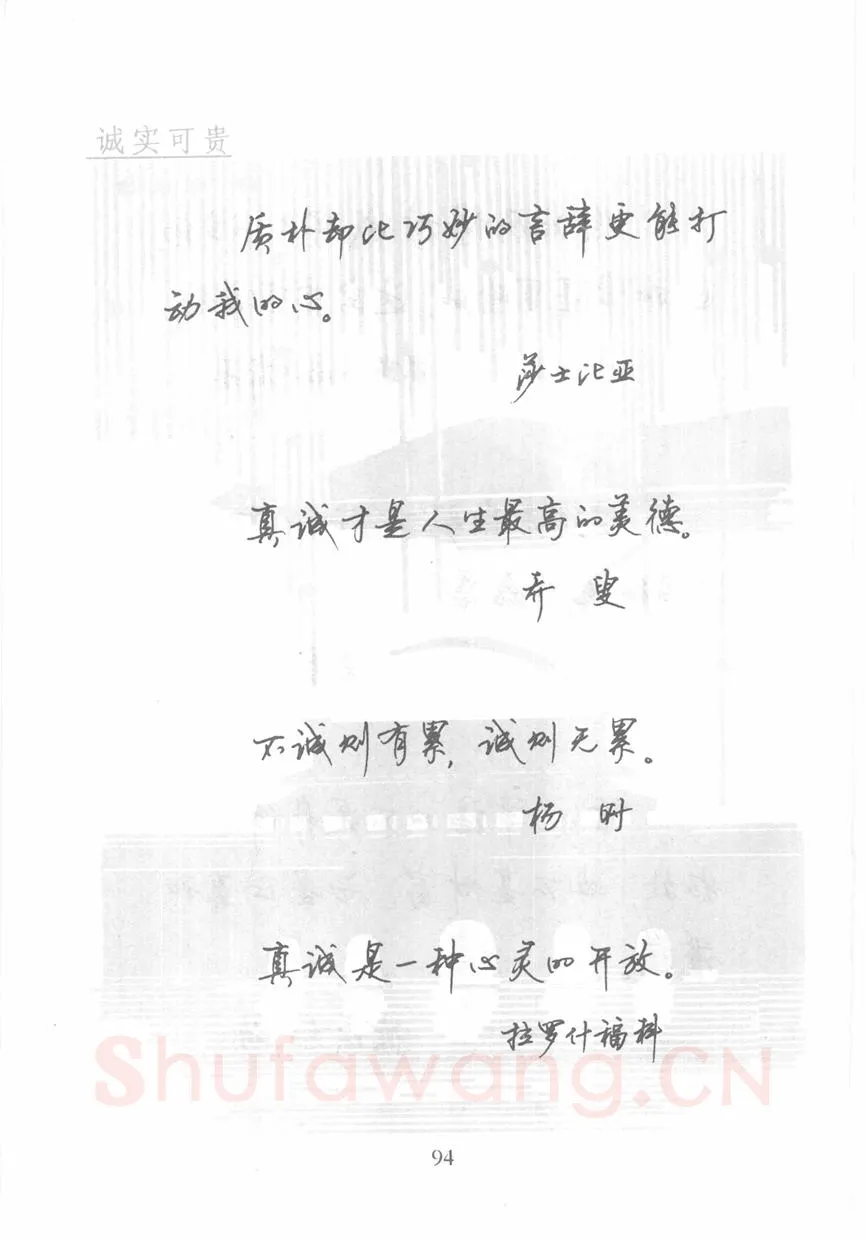 诚实可贵
质朴却比巧妙的言辞更能打
动我的心。
莎士比亚
真诚才是人生最高的美德。
乔 叟
不诚则有累，诚则无累。
杨 时
真诚是一种心灵的开放。
拉罗什福科
Shufawang.CN
94